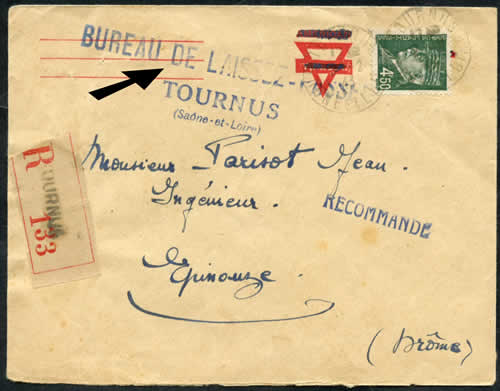 BUREAU DE LAISSEZ-PASSER
TOURNUS
(Saône-et-Loire)
4F50
R TOURNUS
133
Monsieur Parisot Jean
Ingénieur.
RECOMMANDE
Epinouze
(Drôme)